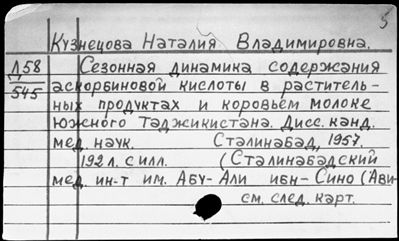 5
Кузнецова Наталия Владимировна.
Д58
545
Сезонная динамика содержания
аскорбиновой кислоты в раститель-
ных продуктах и коровьем молоке
южного Таджикистана. Дисс. канд.
мед. наук. Сталинабад, 1957.
192 л. с илл. (Сталинабадский
мед. ин-т им. Абу-Али ибн-Сино (Ави-
см. след. карт.